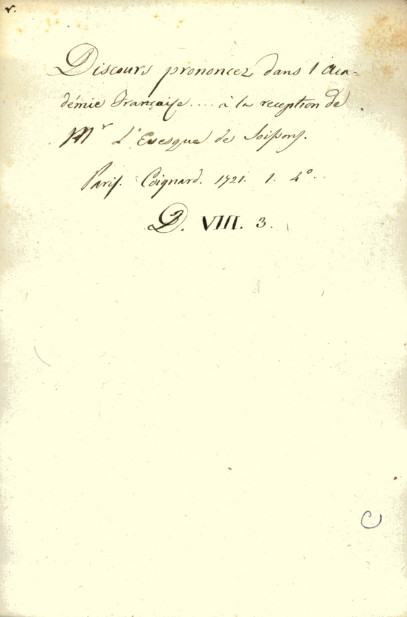 v.
Discours prononcez dans l'Aca-
démie Française .... à la reception de
Mr L'Evesque de Soissons.
Paris. Coignard. 1721. 1. 4°.
D. VIII. 3.
C